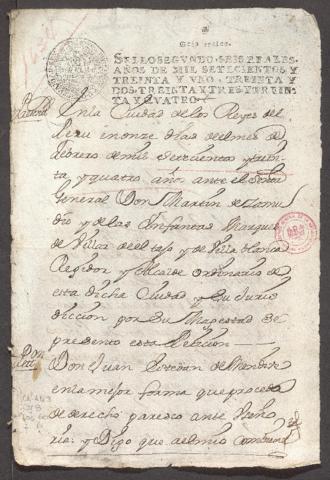 Seis reales.
SELLO SEGVNDO, SEIS REALES,
AÑOS DE MIL SETECIENTOS Y
TREINTA Y VNO, TREINTA Y
DOS, TREINTA Y TRES, Y TREIN
TA Y QVATRO.
En la Ciudad de los Reyes del
Peru en onze dias del mes de
febrero de mill setecientos y treinta
y quatro años ante el Señor
General Don Martin de Zamu
dio y de las Ynfantas Marques
de Villar del tajo y de Villa blanca
Regidor y Alcalde ordinario de
esta dicha Ciudad y su Juris
diccion por Su Magestad se
presento esta Peticion
Peticion
Don Juan de Mendoza
en la mejor forma que proceda
de derecho paresco ante Vuseño
ria y Digo que al mio combiene